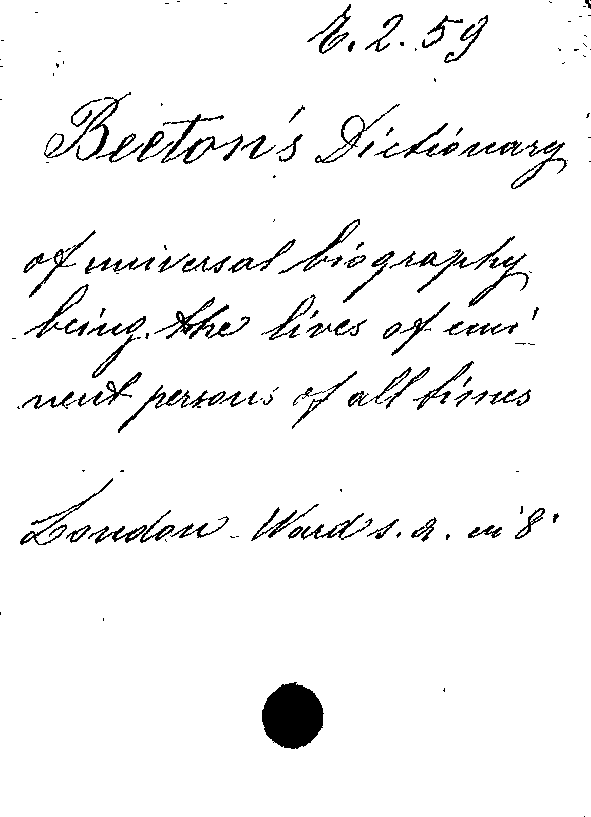 E. 2. 59
Beeton's Dictionary
of universal biography
being the lives of emi-
nent persons of all times
London Ward s. a. in 8°